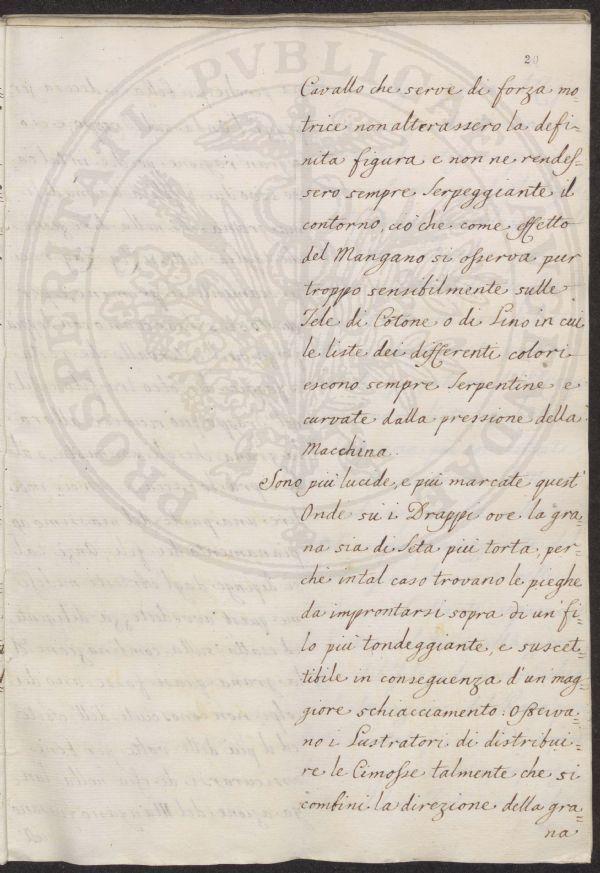 20
Cavallo che serve di forza mo=
trice non alterassero la defi=
nita figura e non ne rendes=
sero sempre serpeggiante il
contorno, ciò che come effetto
del Mangano si osserva pur
troppo sensibilmente sulle
Tele di Cotone o di Lino in cui
le liste dei differenti colori
escono sempre serpentine e
curvate dalla pressione della
Macchina.
Sono più lucide, e più marcate quest'
Onde su i Drappi ove la gra=
na sia di Seta più torta, per=
chè in tal caso trovano le pieghe
da improntarsi sopra di un fi=
lo più tondeggiante, e suscet=
tibile in conseguenza d'un mag=
giore schiacciamento: Osserva=
no i Lustratori di distribui=
re le Cimosse talmente che si
combini la direzione della gra=
na
PROSPERITATI PVBLICAE